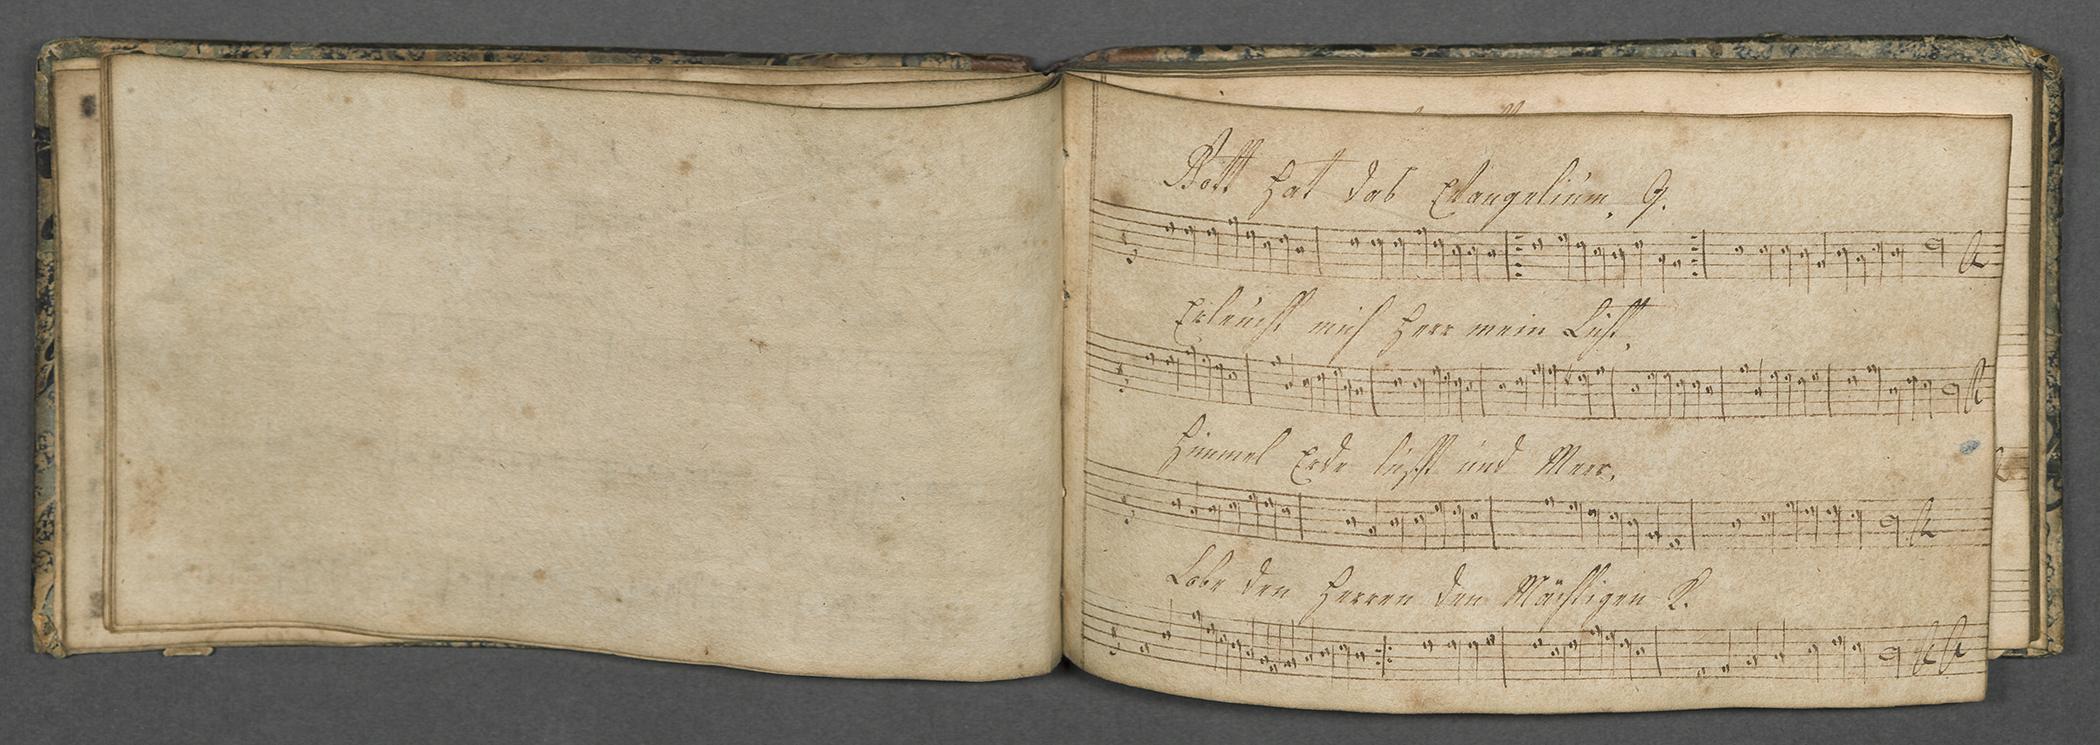 Gott hat das Evangelium, G.
Erleucht mich Herr mein Licht,
Himmel Erde lufft und Meer,
Lobe den Herren den Mächtigen K.